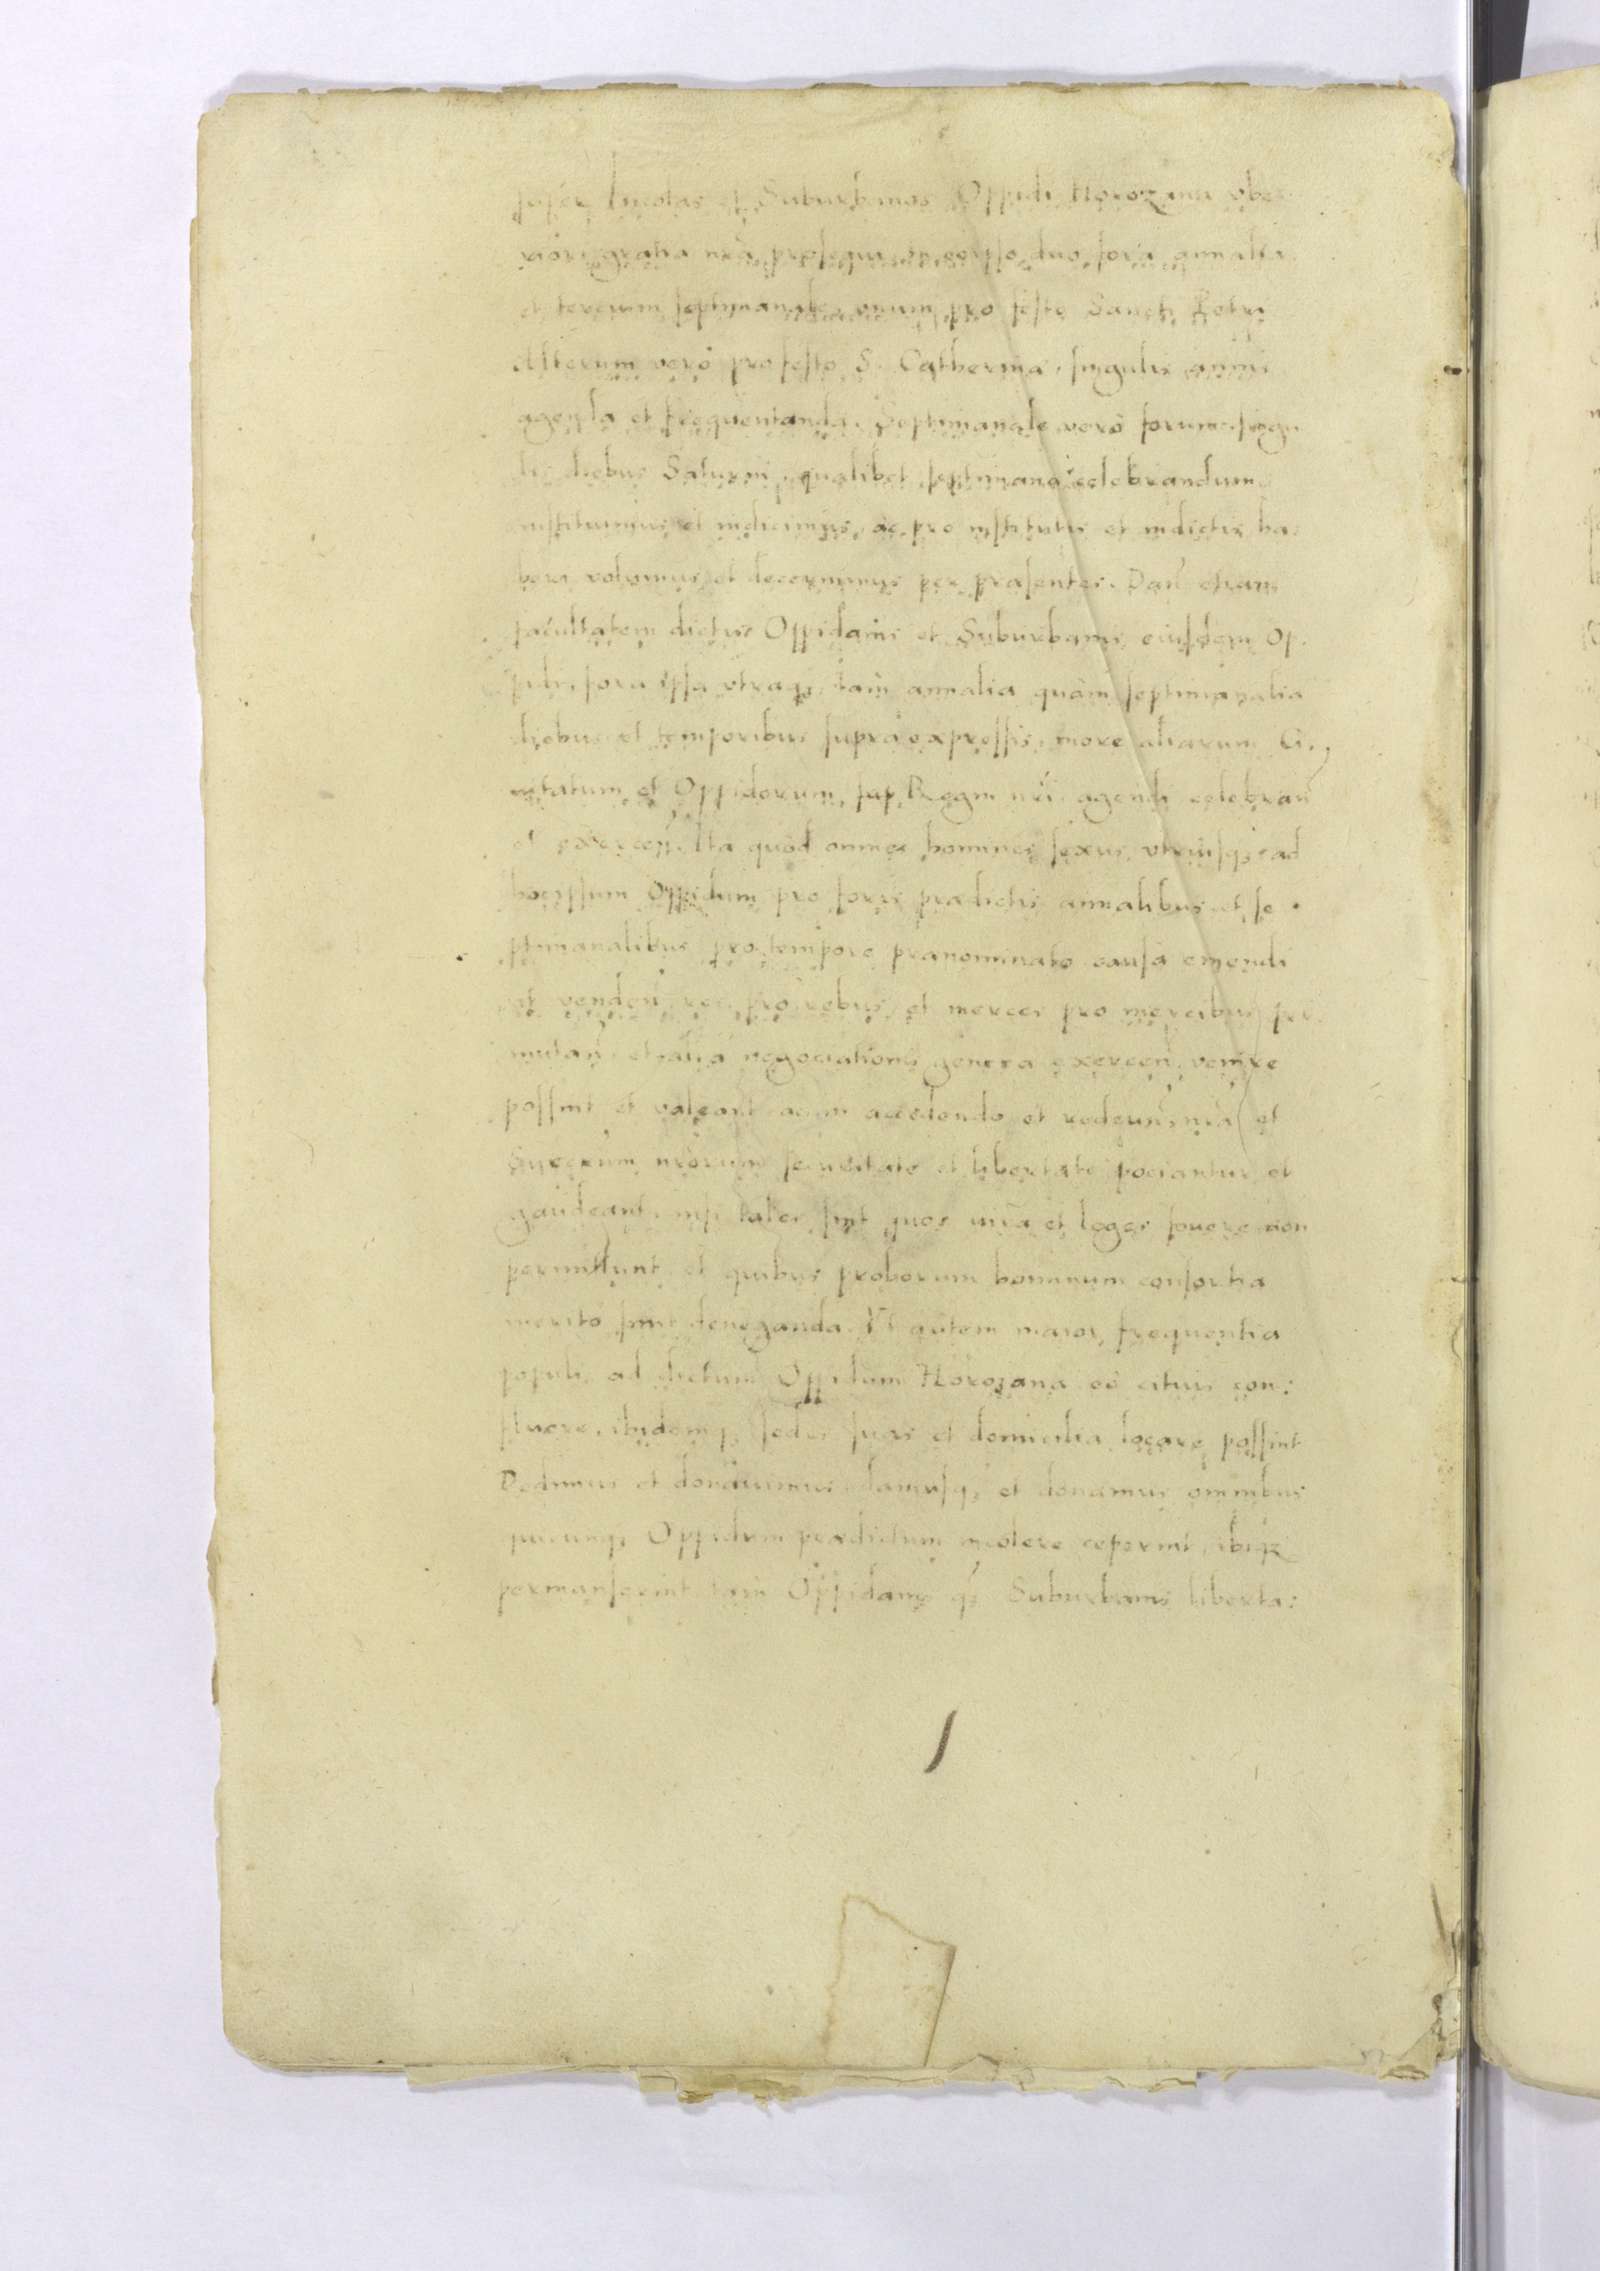 super Incolas et Suburbanos Oppidi Horozana vbe
riori gratia nrã prosequi in eoipso duo fora annalia
et tercium septimanale, vnum pro festo Sancti Petri
Alterum verò pro festo S. Catherina, singulis annis
agenda et frequentanda. Septimanale verò forum singu
lis diebus Saturni, qualibet septimana celebrandum
instituimus et indicimus, ac pro institutis et indictis ha
beri volumus et decernimus per præsentes. Dañ etiam
facultatem dictis Oppidanis et Suburbanis eiusdem Op.
pidi, fora ipsa vtraq3 tam annalia quàm septimanalia
diebus et temporibus supra expressis, more aliarum Ci,
uitatum et Oppidorum Regni nrĩ agendi celebrañ
et exerceñ. Ita quòd omnes homines sexus vtriusq3 ad
hocipsum Oppidum pro foris prædictis annalibus et se
ptimanalibus pro tempore prænominato causa emendi
et vendeñ res pro rebus et merces pro mercibus per
mutañ, et alia negociationis genera exerceñ venire
possint et valeant accedendo et redeuñ, nrã et
Succrum nrõrum securitate et libertate pociantur et
gaudeant, nisi tales sint quos iura et leges fouere non
permittunt, et quibus proborum hominum consortia
meritò sint deneganda. Vt autem maior frequentia
populi ad dictum Oppidum Horozana eò citius con:
fluere, ibidemq3 sedes suas et domicilia locare possint
Dedimus et donauimus damusq3 et donamus omnibus
quicunq3 Oppidum prædictum incolere ceperint, ibiq3
permanserint tam Oppidanis q3 Suburbanis liberta: